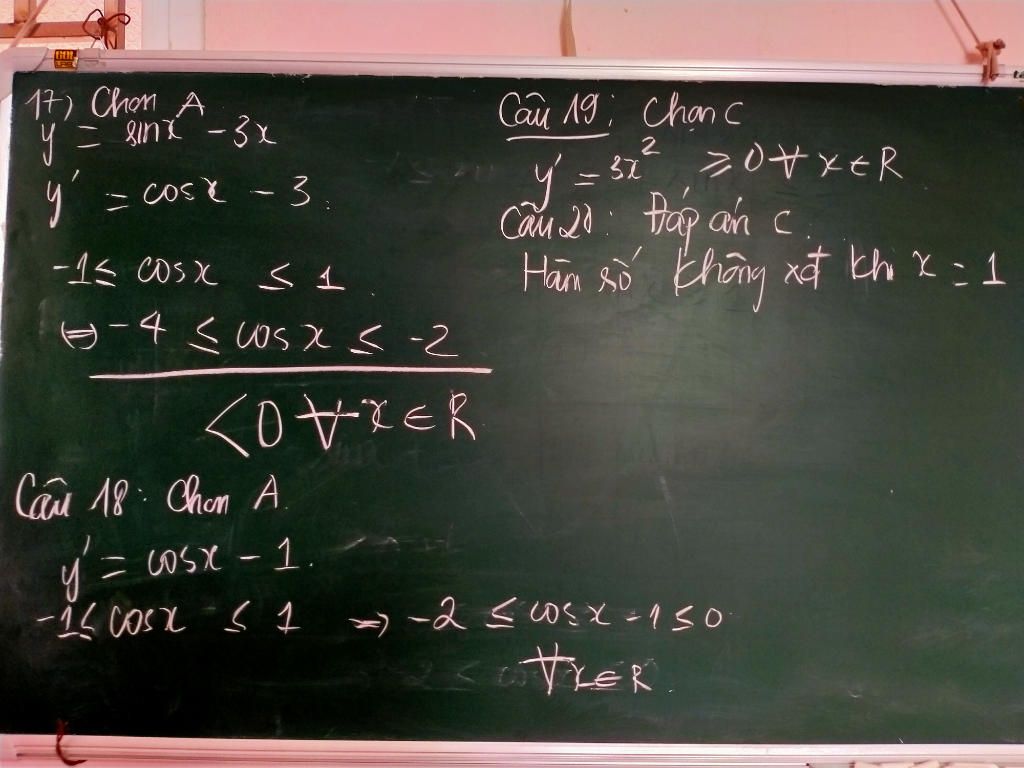 17) Chọn A
y = sinx - 3x
y' = cosx - 3.
-1 ≤ cosx ≤ 1.
(=) -4 ≤ cosx ≤ -2
< 0 ∀ x ∈ R
Câu 18: Chọn A.
y' = cosx - 1.
-1 ≤ cosx ≤ 1 => -2 ≤ cosx - 1 ≤ 0.
∀x ∈ R.
Câu 19: Chọn C
y' = 3x² ≥ 0 ∀ x ∈ R.
Câu 20: Đáp án C.
Hàm số không xđ khi x = 1